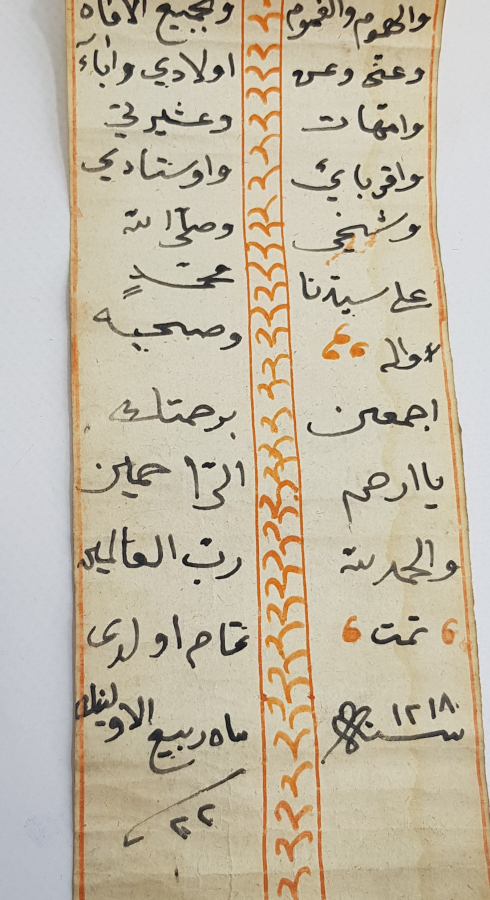 والهموم والغموم ولجميع الافاه
وعنّى وعن اولادي واباۤئ
وامّهات وعشيرتي
واقرباۤئ واوستادي
وشيخي وصلّى الله
على سيّدنا محمّدٍ
واله وصحبه
اجمعين برحمتك
يا ارحم الرّاحمين
والحمد لله ربّ العالمين
تمت تمام اولدى
سنة ١٢١٨ ماه ربيع الاول
٢٢